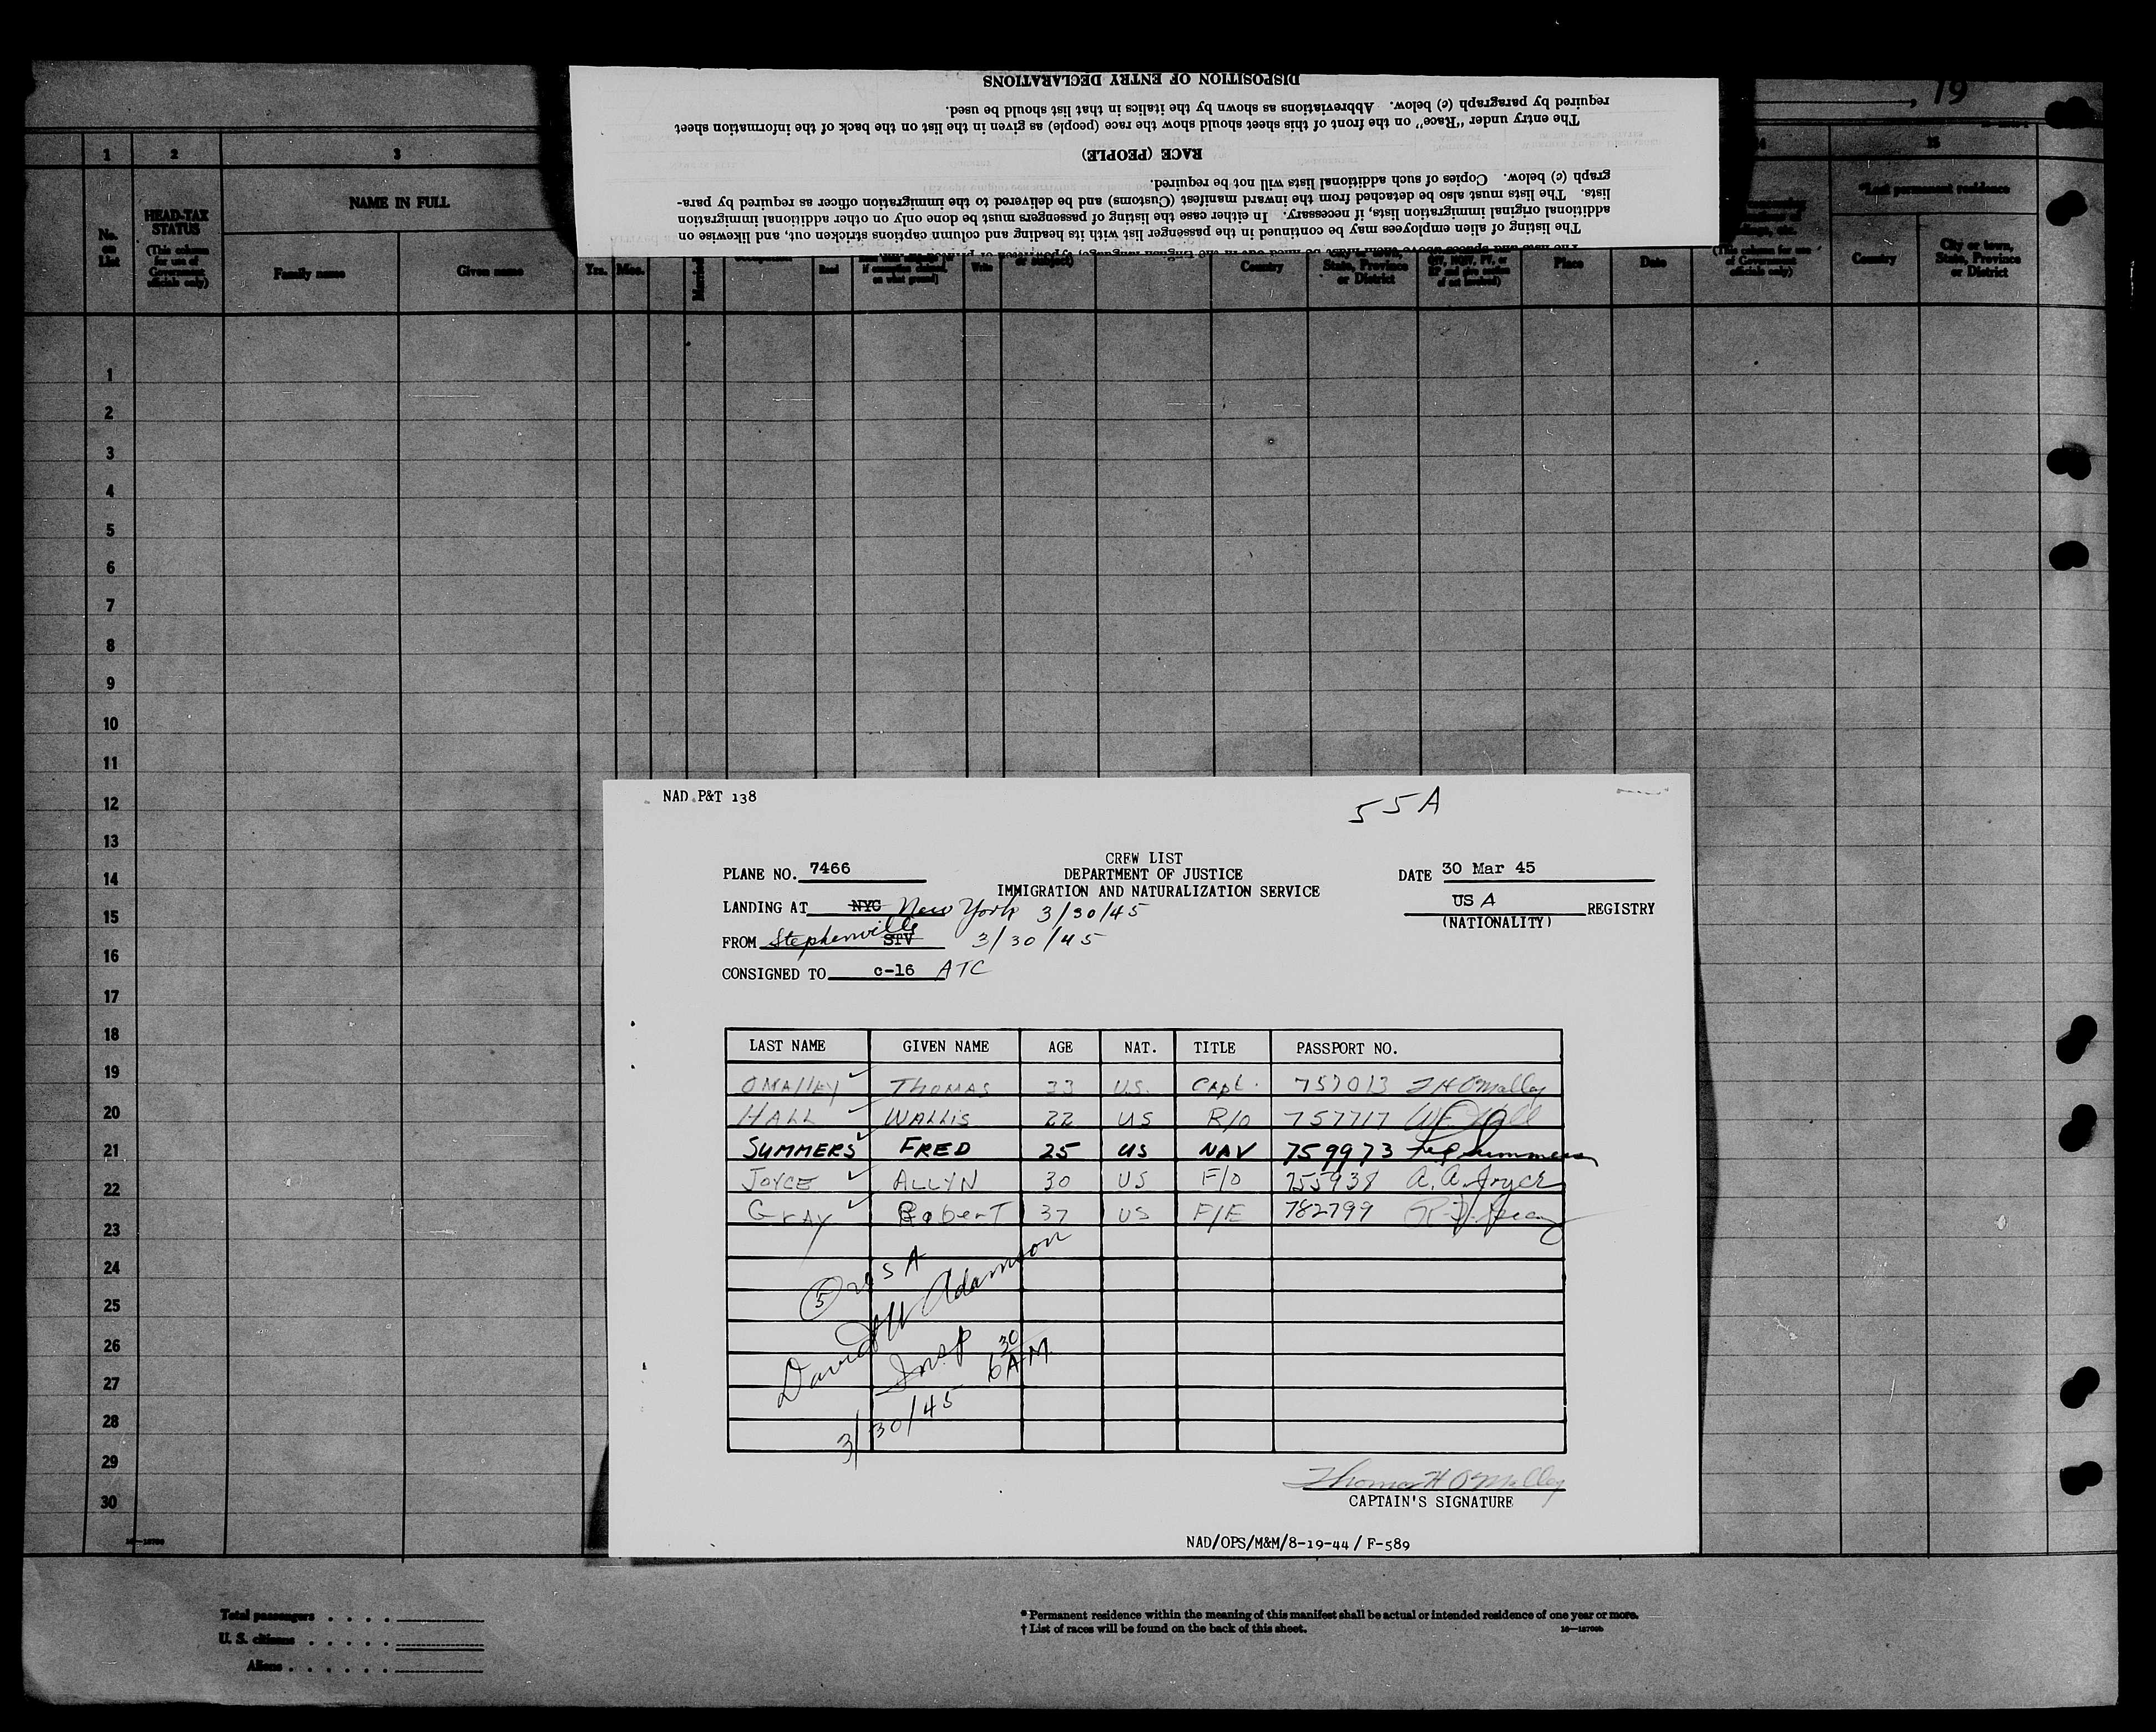 DISPOSITION OF ENTRY DECLARATIONS
required by paragraph (c) below. Abbreviations as shown by the italics in that list should be used.
The entry under "Race" on the front of this sheet should show the race (people) as given in the list on the back of the information sheet
RACE (PEOPLE)
graph (c) below. Copies of such additional lists will not be required.
lists. The lists must also be detached from the inward manifest (Customs) and be delivered to the immigration officer as required by para-
additional original immigration lists, if necessary. In either case the listing of passengers must be done only on other additional immigration
The listing of alien employees may be continued in the passenger list with its heading and column captions stricken out, and likewise on
, 19
1 2 3 15
No. on List
HEAD-TAX STATUS
(This column for use of Government officials only)
NAME IN FULL
Family name
Given name
Yrs. Mos.
Married
Read
Write
or subject)
Country
State, Province or District
Place
Date
(This column for use of Government officials only)
*Last permanent residence
Country
City or town, State, Province or District
1
2
3
4
5
6
7
8
9
10
11
12
13
14
15
16
17
18
19
20
21
22
23
24
25
26
27
28
29
30
NAD P&T 138
55A
CREW LIST
PLANE NO. 7466 DEPARTMENT OF JUSTICE DATE 30 Mar 45
IMMIGRATION AND NATURALIZATION SERVICE
LANDING AT NYC New York 3/30/45 USA REGISTRY
(NATIONALITY)
FROM Stephenville STV 3/30/45
CONSIGNED TO c-16 ATC
LAST NAME GIVEN NAME AGE NAT. TITLE PASSPORT NO.
OMALLEY THOMAS 33 U.S. Capt. 757013 T H O'Malley
HALL WALLIS 22 US R/O 757717
SUMMERS FRED 25 US NAV 759973
JOYCE ALLYN 30 US F/O 755938 A. A. Joyce
GrAy RoberT 37 US F/E 782799
5 USA
David W Adamson
Insp 6 30 AM
3/30/45
Thomas H O'Malley
CAPTAIN'S SIGNATURE
NAD/OPS/M&M/8-19-44/ F-589
Total passengers . . . .
U. S. citizens . . . . .
Aliens . . . . . .
* Permanent residence within the meaning of this manifest shall be actual or intended residence of one year or more.
† List of races will be found on the back of this sheet.